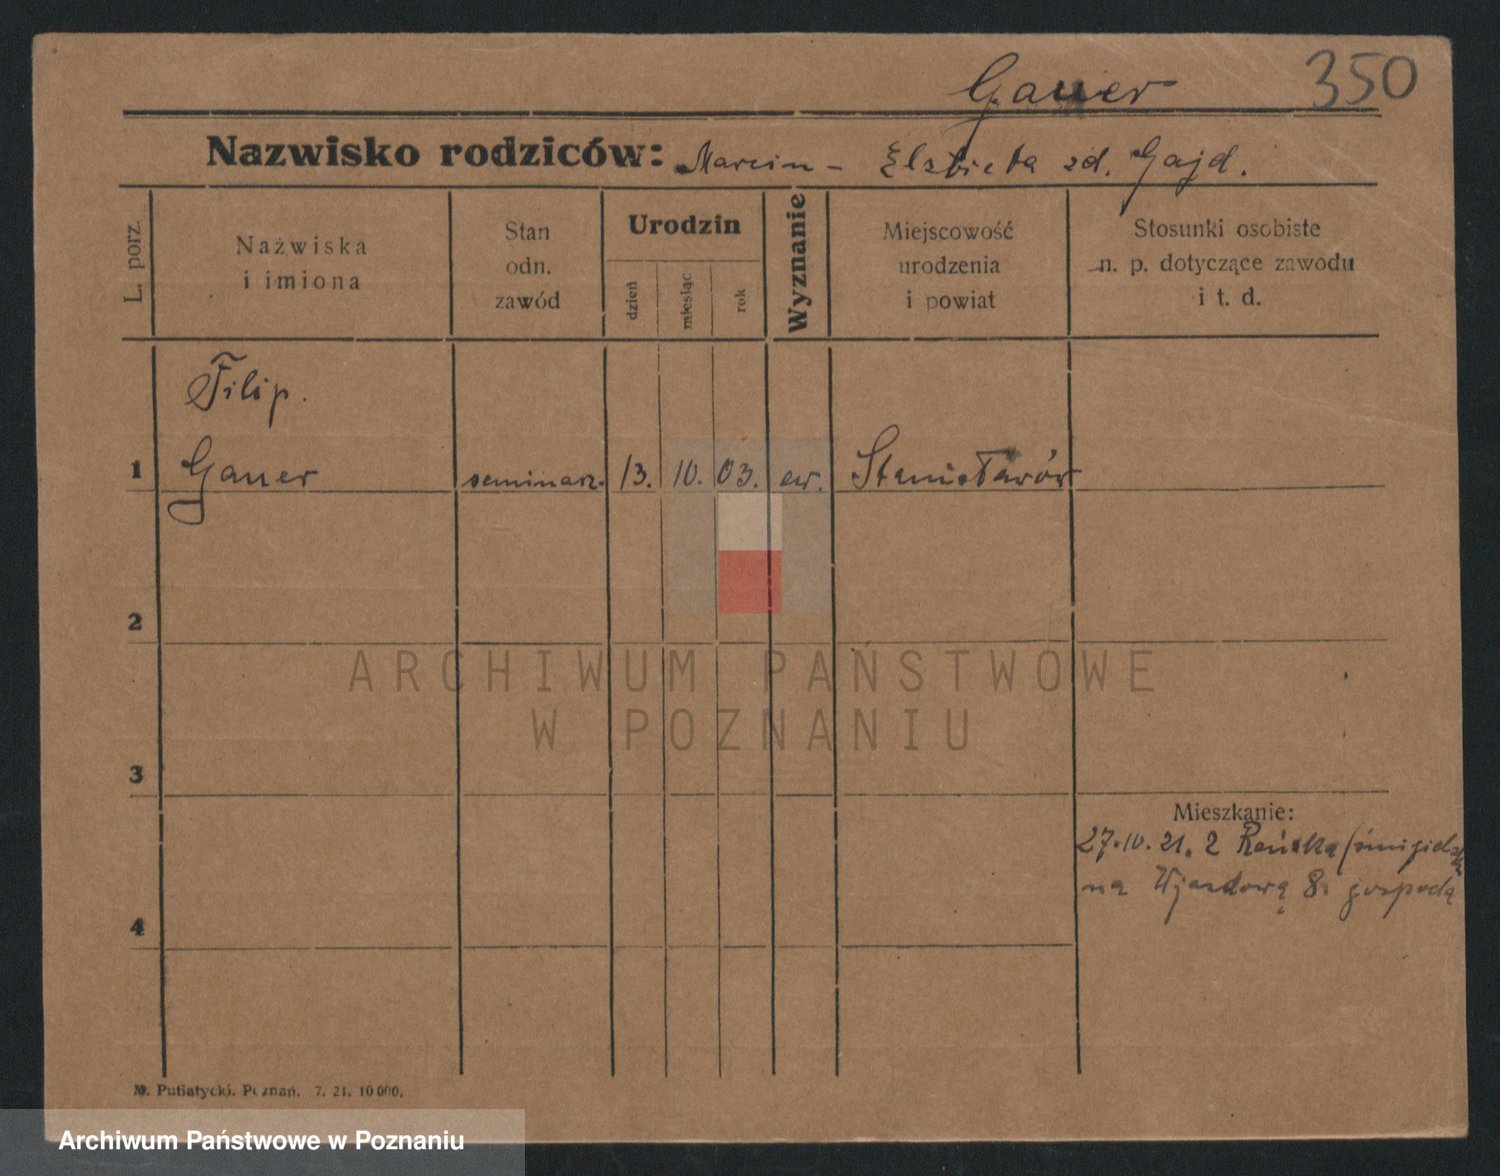 Gauer 350
Nazwisko rodziców: Marcin - Elzbieta zd. Gajd.
L. porz.
Nazwiska
i imiona
Stan
odn.
zawód
Urodzin
dzień
miesiąc
rok
Wyznanie
Miejscowość
urodzenia
i powiat
Stosunki osobiste
n. p. dotyczące zawodu
i t. d.
Filip.
1 Gauer seminarz. 13. 10. 03. ew. Stanisławów
2
ARCHIWUM PAŃSTWOWE
W POZNANIU
3
Mieszkanie:
27.10.21. 2
na Ujazdową 8. gospodą
4
M. Putiatycki. Poznań. 7. 21. 10000.
Archiwum Państwowe w Poznaniu